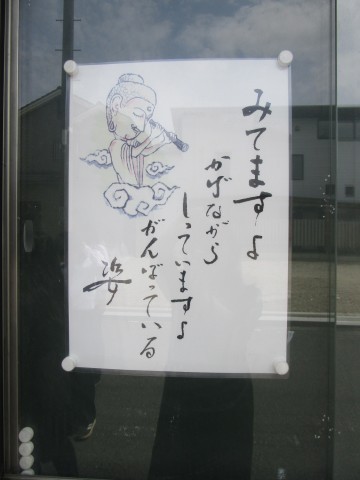 みてますよ
かげながら
しっていますよ
がんばっている
姿